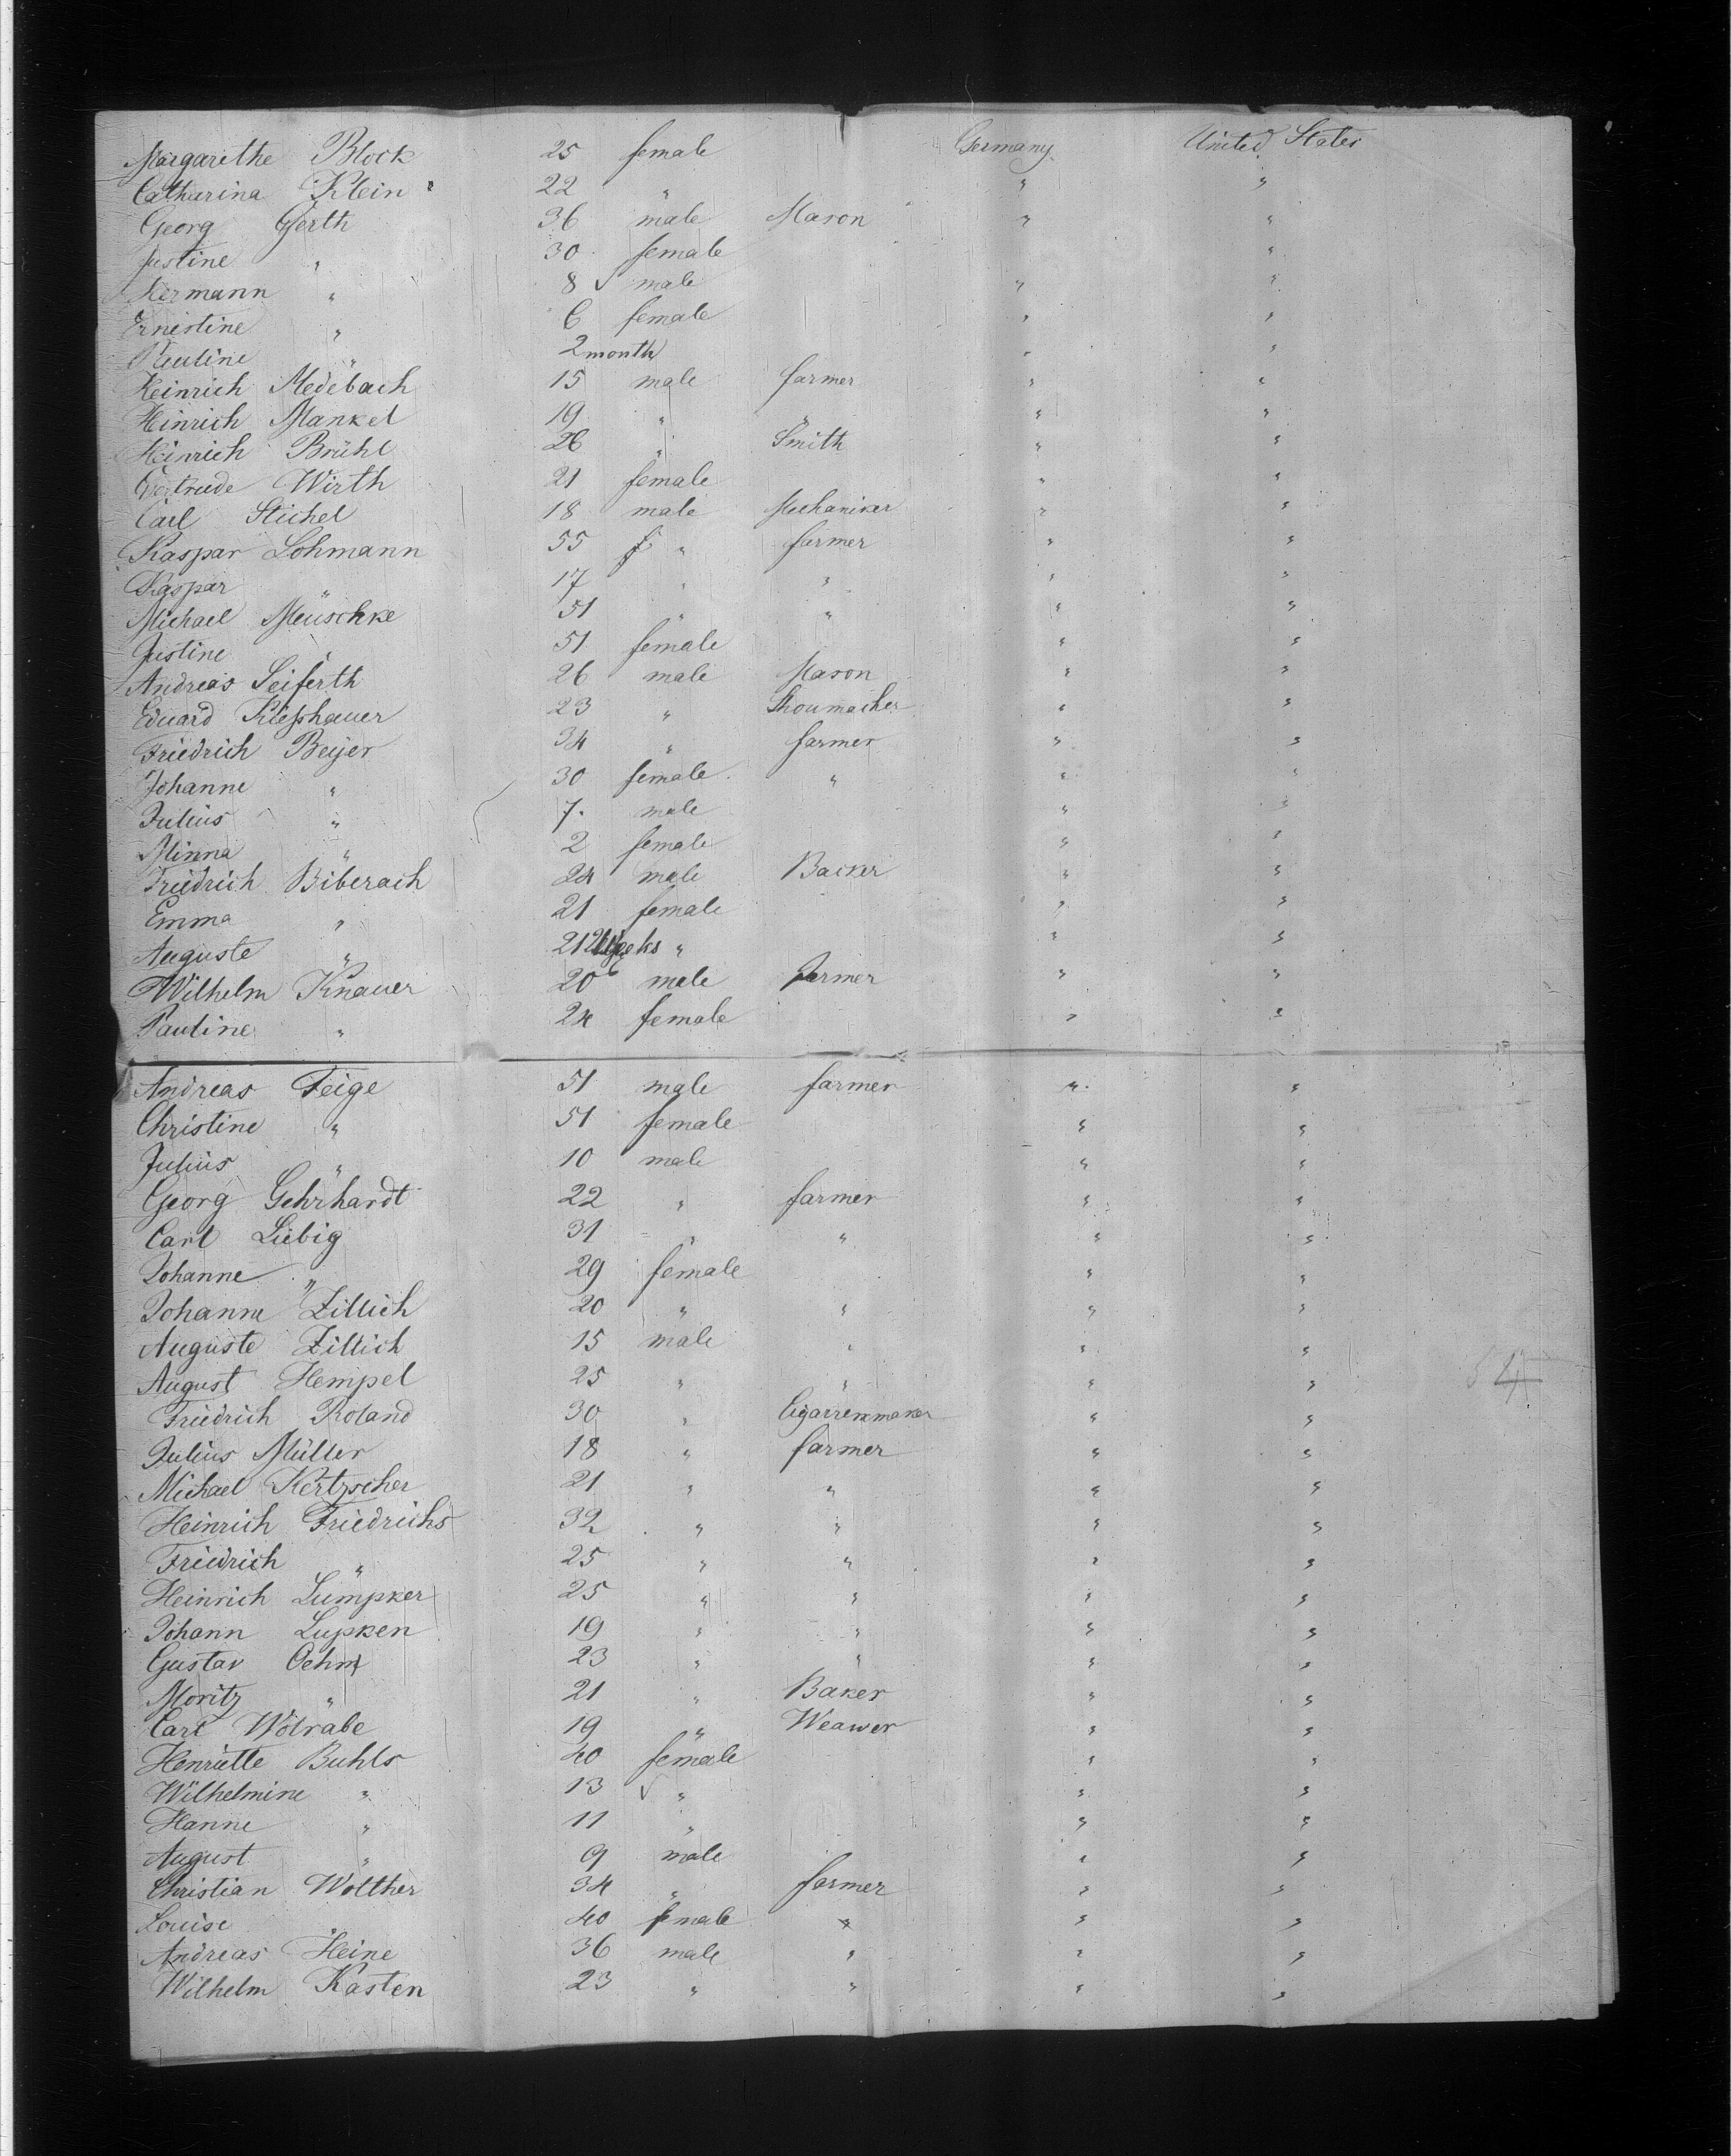 Margarethe Block 25 female Germany United States
Catharina Klein 22 " " "
Georg Gerth 36 male Mason " "
Justine " 30 female "
Hermann " 8 male " "
Ernestine " 6 female " "
Pauline " 2 month " "
Heinrich Medebach 15 male farmer " "
Heinrich Mankel 19 " " " "
Heinrich Brühl 26 " Smith " "
Gertrude Wirth 21 female " "
Carl Stichel 18 male Mechaniker " "
Kaspar Lohmann 55 " farmer " "
Kaspar " 17 " " " "
Michael Meuschke 51 " " " "
Justine " 51 female " "
Andreas Seiferth 26 male Mason " "
Eduard Kießhauer 23 " Shoumacher " "
Friedrich Beyer 34 " farmer " "
Johanne " 30 female " " "
Julius " 7 male " "
Minna " 2 female " "
Friedrich Biberach 24 male Backer " "
Emma " 21 female " "
Auguste " " " "
Wilhelm Knauer 20 male farmer " "
Pauline " 24 female " "
Andreas Feige 51 male farmer " "
Christine " 51 female " "
Julius " 10 male " "
Georg Gehrhardt 22 " farmer " "
Carl Liebig 31 " " " "
Johanne " 29 female " "
Johanne Zillich 20 " " " "
Auguste Zillich 15 male " " "
August Hempel 25 " " " "
Friedrich Roland 30 " Cigarrenmaker " "
Julius Müller 18 " farmer " "
Michael Kertzscher 21 " " " "
Heinrich Friedrichs 32 " " " "
Friedrich " 25 " " " "
Heinrich Lumpker 25 " " " "
Johann Lupken 19 " " " "
Gustav Oehm 23 " " " "
Moritz " 21 " Baker " "
Carl Wolrabe 19 " Weawer " "
Henriette Buhls 40 female " "
Wilhelmine " 13 " " "
Hanne " 11 " " "
August " 9 male " "
Christian Wolther 34 " farmer " "
Louise " 40 female " " "
Andreas Heine 36 male " " "
Wilhelm Kasten 23 " " " "